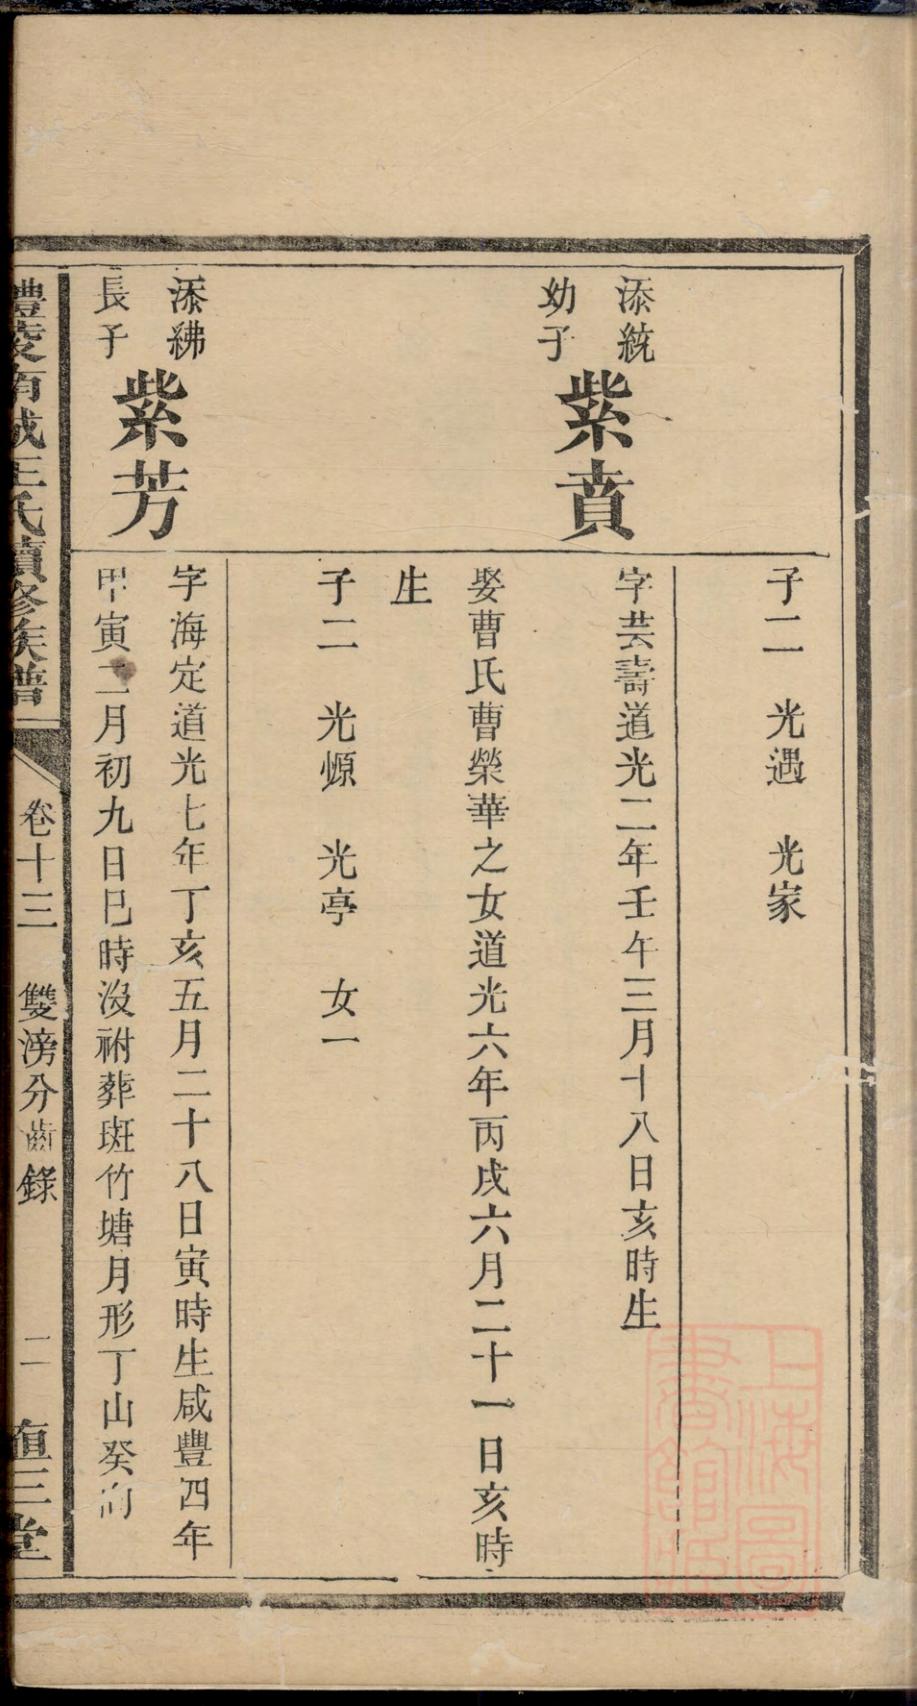 子二　光遇　光家
添統
幼子
紫賁
字芸壽道光二年壬午三月十八日亥時生
娶曹氏曹榮華之女道光六年丙戌六月二十一日亥時
生
子二　光㥳　光亭　女一
添紼
長子
紫芳
字海定道光七年丁亥五月二十八日寅時生咸豐四年
甲寅二月初九日巳時沒祔葬斑竹塘月形丁山癸向
醴陵南城王氏續修族譜
卷十三　雙滂分齒錄
二
三堂
上海圖
書館藏